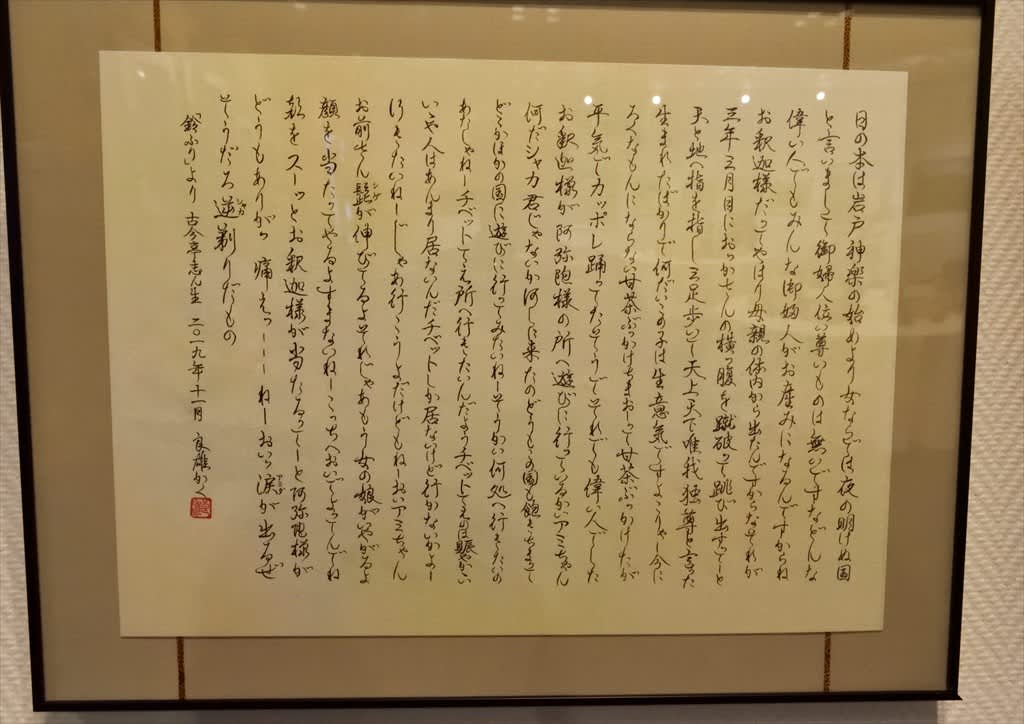 日の本は岩戸神楽の始めより女ならでは夜の明けぬ国
と言いまして御婦人位い尊いものは無いですなどんな
偉い人でもみんな御婦人がお産みになるんですからね
お釈迦様だってやはり母親の体内から出たんですからなそれが
三年三月目におっかさんの横っ腹を蹴破って跳び出すてーと
天と地へ指を指し三足歩いて天上天下唯我独尊と言った
生まれたばかりで何だいこの子は生意気ですよこりゃー今に
ろくなもんにならない甘茶ぶっかけちまおって甘茶ぶっかけたが
平気でカッポレ踊ってたそうでそれでも偉い人でした
お釈迦様が阿弥陀様の所へ遊びに行っているかいアミちゃん
何だシャカ君じゃないか何しに来たのどうもこの国も飽きちまって
どこかほかの国に遊びに行ってみたいねーそうかい何処へ行きたいの
あたしゃねーチベットてえ所へ行きたいんだようチベットてえのは賑やかい
いゃ人はあんまり居ないんだチベットしか居ないけど行かないかよー
行きたいねーじゃあ行こうよだけどもねーおいアミちゃん
お前さん髭ヒゲが伸びてるよそれじゃあもう女の娘がいやがるよ
顔を当たってやるよすまないねーこっちへおいでよってんでね
顔をスーッとお釈迦様が当たるってーと阿弥陀様が
どうもありがってえ痛えっーーーねーおいっ涙が出るぜ
そうだろ逆剃シャカりだもの
「鈴ふり」より 古今亭志ん生 二〇一九年十一月 良雄かく